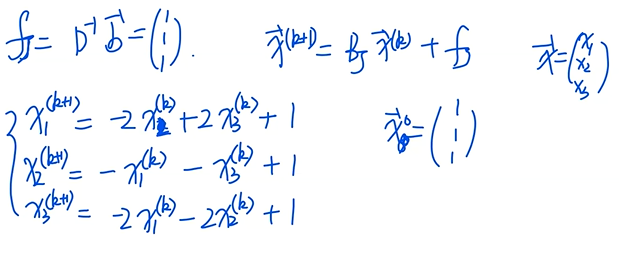 f_J = D⁻¹ b⃗ = (1 1 1). x⃗^(k+1) = B_J x⃗^(k) + f_J x⃗ = (x₁ x₂ x₃)
{ x₁^(k+1) = -2x₂^(k) + 2x₃^(k) + 1 x⃗⁰ = (1 1 1)
x₂^(k+1) = -x₁^(k) - x₃^(k) + 1
x₃^(k+1) = -2x₁^(k) - 2x₂^(k) + 1